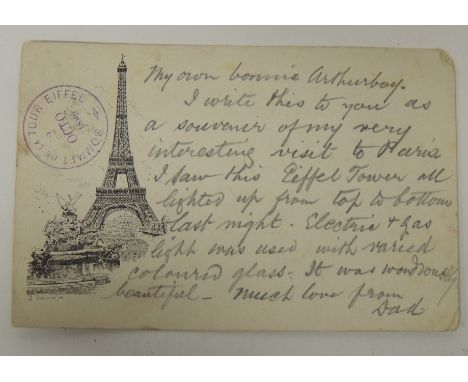 SOMMET DE LA TOUR EIFFEL
My own bonnie Arthurboy.
I write this to you as
a souvenir of my very
interesting visit to Paris
I saw this Eiffel Tower all
lighted up from top to bottom
last night. Electric & gas
light was used with varied
coloured glass. It was wondrously
beautiful - Much love from
Dad